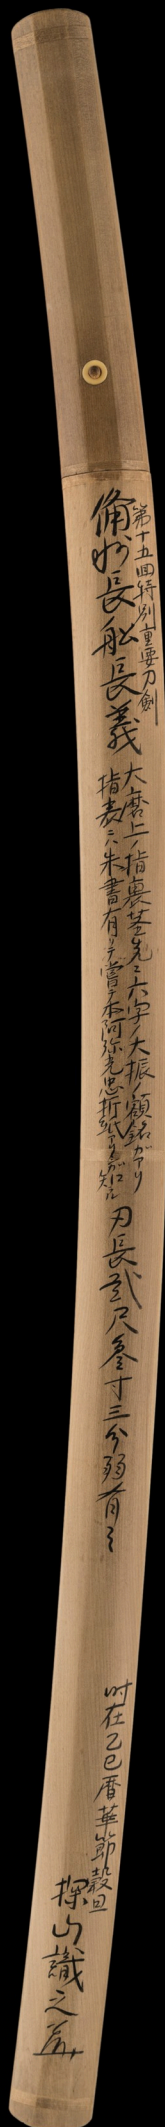 第十五回特別重要刀剣
備州長船長義
大磨上ノ指裏茎先ニ六字ノ大振ノ額銘ガアリ
指表ニハ朱書有リテ嘗テ本阿弥光忠折紙
刃長弐尺参寸三分弱有之
時在乙巳暦華節穀旦
探山識之